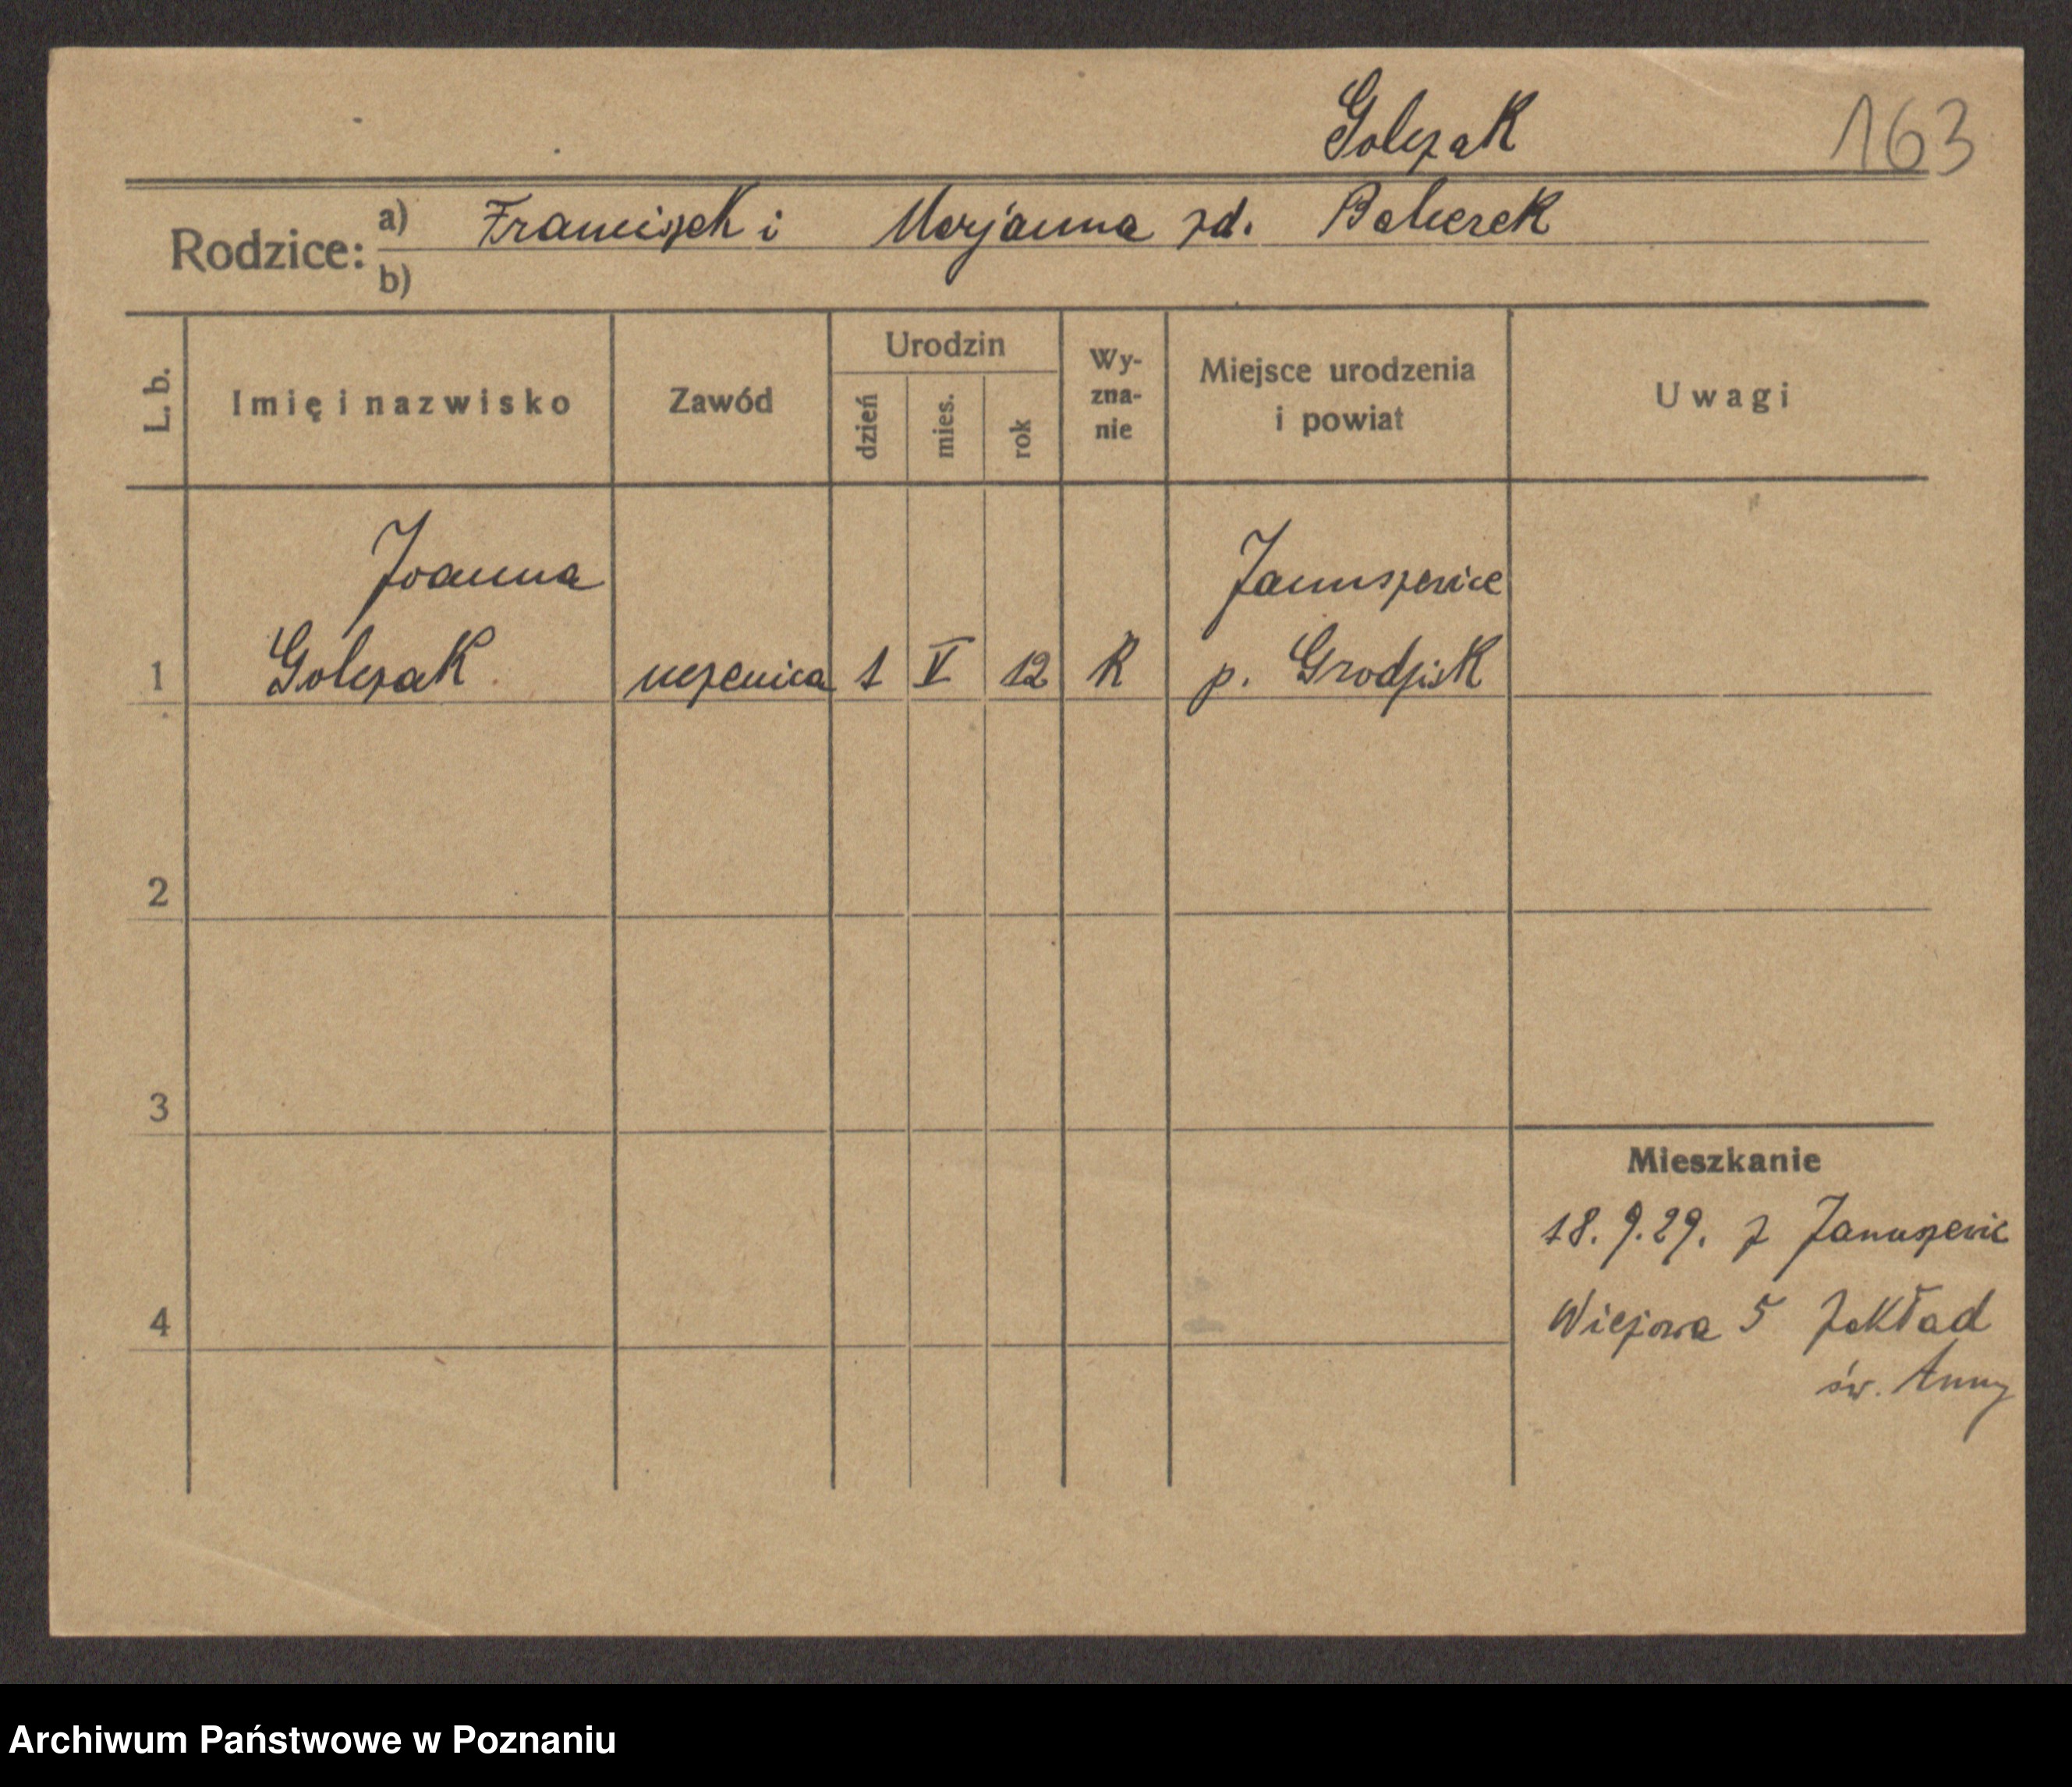 Golczak 163
Rodzice: a) Franciszek i Marjanna zd.
b)
L. b. Imię i nazwisko Zawód Urodzin dzień mies. rok Wy-zna-nie Miejsce urodzenia i powiat Uwagi
Joanna Januszewice
1 Golczak uczenica 1 V 12 R p. Grodzisk
2
3
Mieszkanie
18.9.29. z Januszewic
4 Wiejowa 5 Zakład
św. Anny
Archiwum Państwowe w Poznaniu